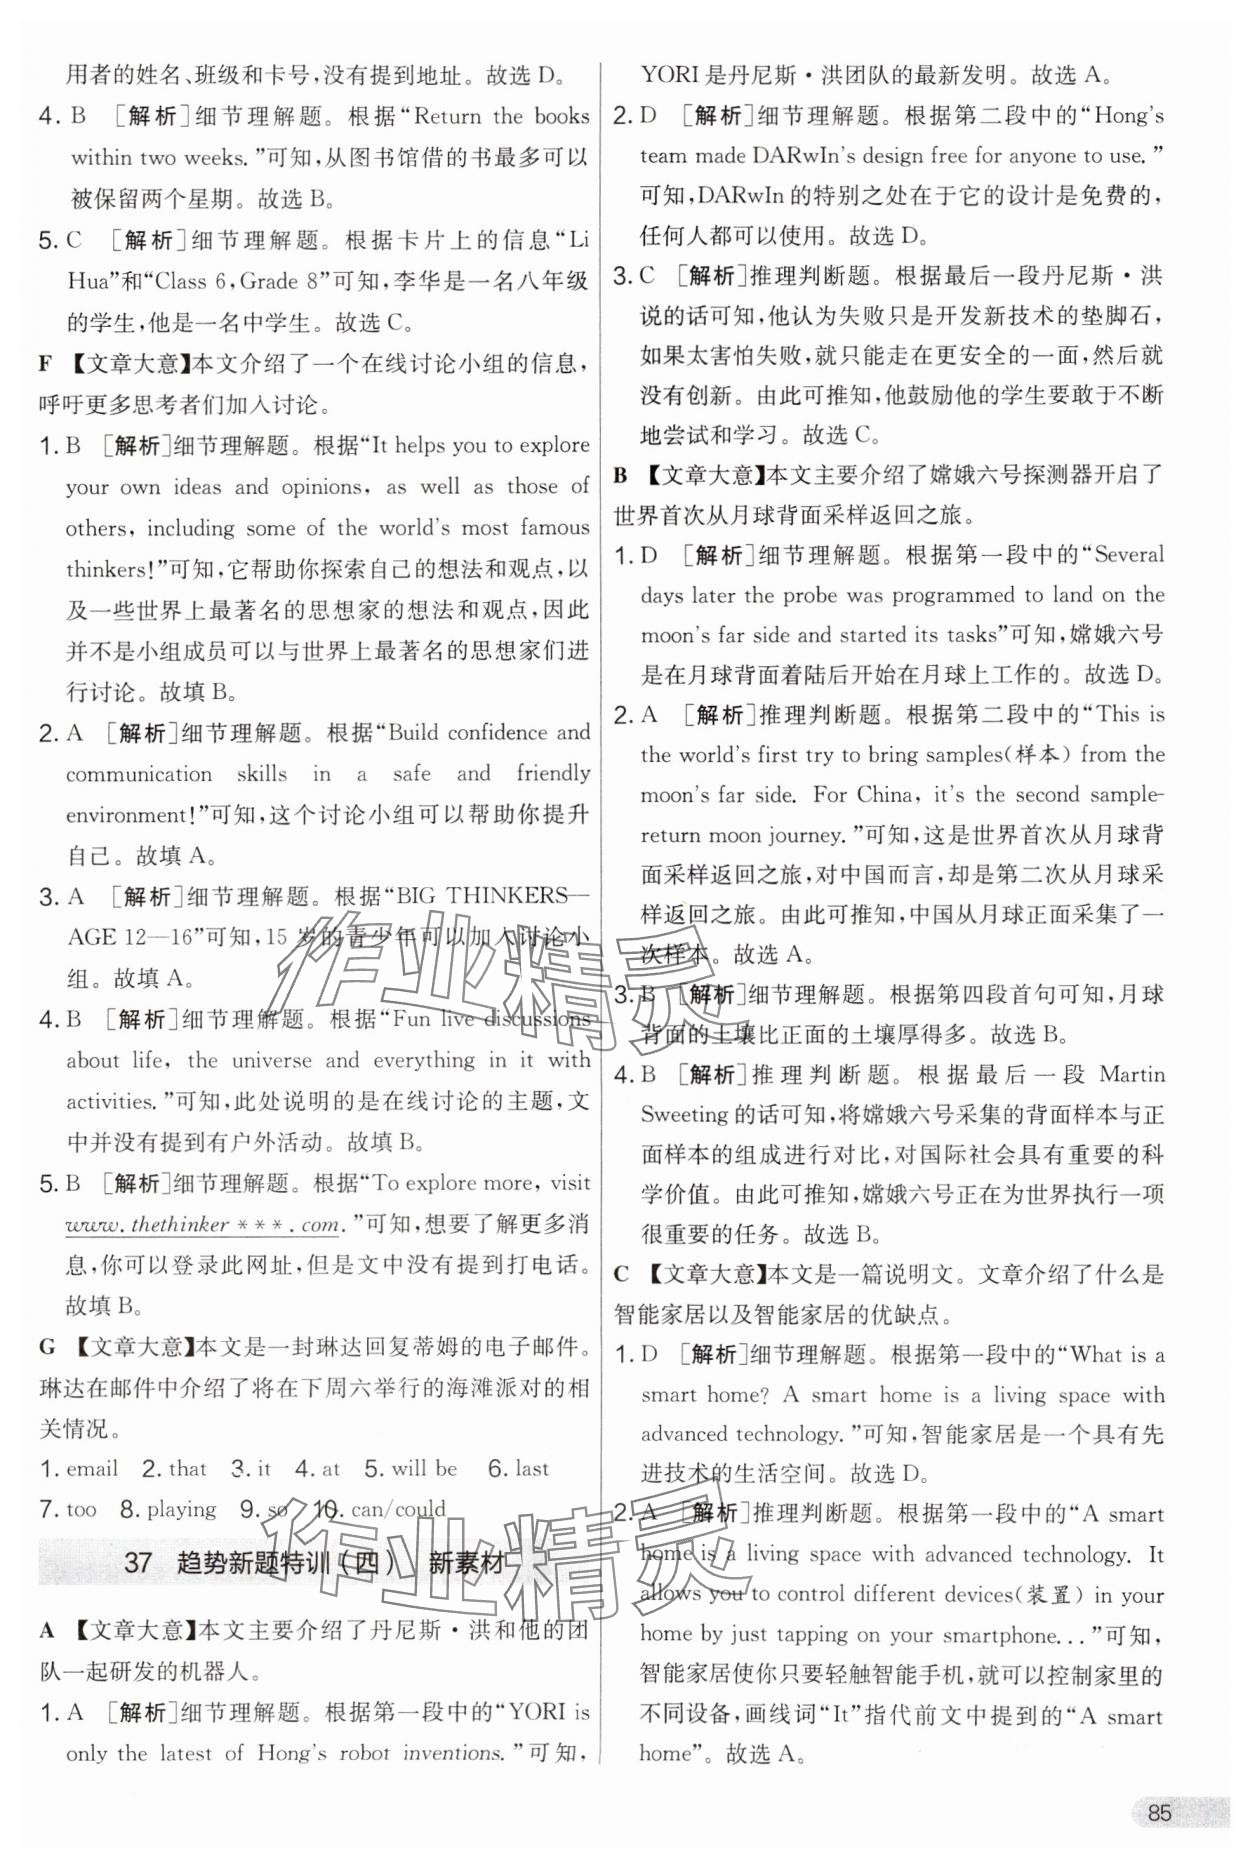 用者的姓名、班级和卡号,没有提到地址。故选 D。
4. B [解析]细节理解题。根据“Return the books
within two weeks.”可知,从图书馆借的书最多可以
被保留两个星期。故选 B。
5. C [解析]细节理解题。根据卡片上的信息“Li
Hua”和“Class 6, Grade 8”可知,李华是一名八年级
的学生,他是一名中学生。故选 C。
F 【文章大意】本文介绍了一个在线讨论小组的信息,
呼吁更多思考者们加入讨论。
1. B [解析]细节理解题。根据“It helps you to explore
your own ideas and opinions, as well as those of
others, including some of the world's most famous
thinkers!”可知,它帮助你探索自己的想法和观点,以
及一些世界上最著名的思想家的想法和观点,因此
并不是小组成员可以与世界上最著名的思想家们进
行讨论。故填 B。
2. A [解析]细节理解题。根据“Build confidence and
communication skills in a safe and friendly
environment!”可知,这个讨论小组可以帮助你提升
自己。故填 A。
3. A [解析]细节理解题。根据“BIG THINKERS—
AGE 12—16”可知,15 岁的青少年可以加入讨论小
组。故填 A。
4. B [解析]细节理解题。根据“Fun live discussions
about life, the universe and everything in it with
activities.”可知,此处说明的是在线讨论的主题,文
中并没有提到有户外活动。故填 B。
5. B [解析]细节理解题。根据“To explore more, visit
www.thethinker***.com.”可知,想要了解更多消
息,你可以登录此网址,但是文中没有提到打电话。
故填 B。
G 【文章大意】本文是一封琳达回复蒂姆的电子邮件。
琳达在邮件中介绍了将在下周六举行的海滩派对的相
关情况。
1. email 2. that 3. it 4. at 5. will be 6. last
7. too 8. playing 9. so 10. can/could
37 趋势新题特训(四) 新素材
A 【文章大意】本文主要介绍了丹尼斯·洪和他的团
队一起研发的机器人。
1. A [解析]细节理解题。根据第一段中的“YORI is
only the latest of Hong's robot inventions.”可知,
YORI 是丹尼斯·洪团队的最新发明。故选 A。
2. D [解析]细节理解题。根据第二段中的“Hong's
team made DARwIn's design free for anyone to use.”
可知,DARwIn 的特别之处在于它的设计是免费的,
任何人都可以使用。故选 D。
3. C [解析]推理判断题。根据最后一段丹尼斯·洪
说的话可知,他认为失败只是开发新技术的垫脚石,
如果太害怕失败,就只能走在更安全的一面,然后就
没有创新。由此可推知,他鼓励他的学生要敢于不断
地尝试和学习。故选 C。
B 【文章大意】本文主要介绍了嫦娥六号探测器开启了
世界首次从月球背面采样返回之旅。
1. D [解析]细节理解题。根据第一段中的“Several
days later the probe was programmed to land on the
moon's far side and started its tasks”可知,嫦娥六号
是在月球背面着陆后开始在月球上工作的。故选 D。
2. A [解析]推理判断题。根据第二段中的“This is
the world's first try to bring samples(样本) from the
moon's far side. For China, it's the second sample-
return moon journey.”可知,这是世界首次从月球背
面采样返回之旅,对中国而言,却是第二次从月球采
样返回之旅。由此可推知,中国从月球正面采集了一
次样本。故选 A。
3. B [解析]细节理解题。根据第四段首句可知,月球
背面的土壤比正面的土壤厚得多。故选 B。
4. B [解析]推理判断题。根据最后一段 Martin
Sweeting 的话可知,将嫦娥六号采集的背面样本与正
面样本的组成进行对比,对国际社会具有重要的科
学价值。由此可推知,嫦娥六号正在为世界执行一项
很重要的任务。故选 B。
C 【文章大意】本文是一篇说明文。文章介绍了什么是
智能家居以及智能家居的优缺点。
1. D [解析]细节理解题。根据第一段中的“What is a
smart home? A smart home is a living space with
advanced technology.”可知,智能家居是一个具有先
进技术的生活空间。故选 D。
2. A [解析]推理判断题。根据第一段中的“A smart
home is a living space with advanced technology. It
allows you to control different devices(装置) in your
home by just tapping on your smartphone...”可知,
智能家居使你只要轻触智能手机,就可以控制家里的
不同设备,画线词“It”指代前文中提到的“A smart
home”。故选 A。
作业精灵
作业精灵
85